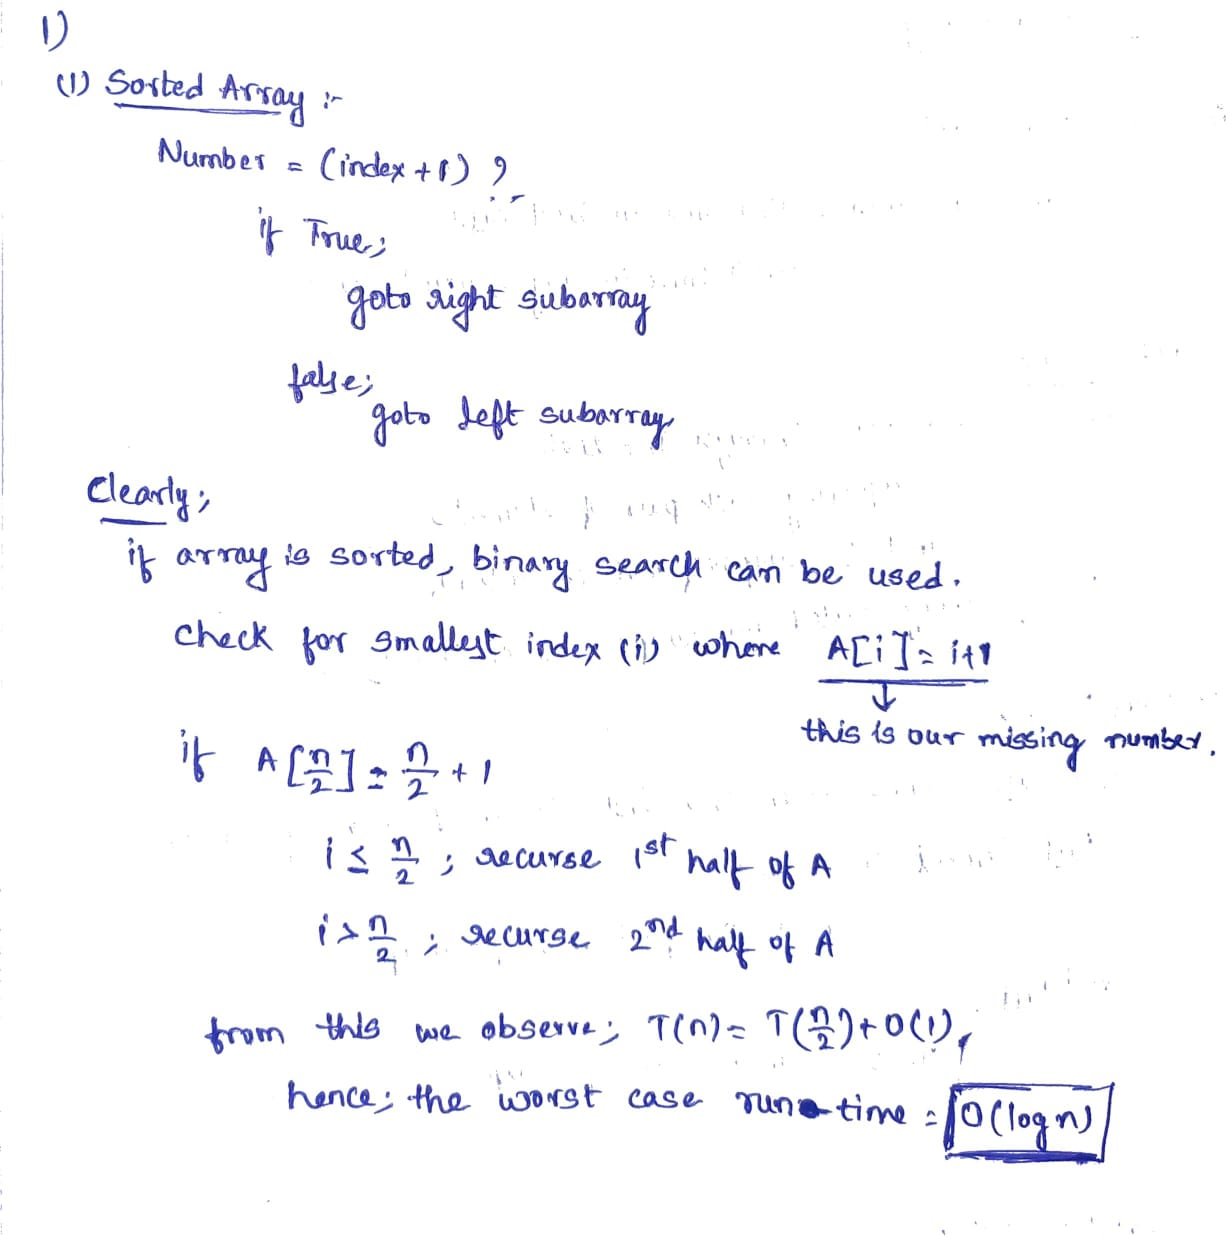 1)
(1) Sorted Array :-
Number = (index + 1) ?
if True;
goto right subarray
false;
goto left subarray
Clearly;
if array is sorted, binary search can be used.
Check for smallest index (i) where A[i] = i+1
this is our missing number.
if A[n/2] = n/2 + 1
i ≤ n/2 ; recurse 1st half of A
i > n/2 ; recurse 2nd half of A
from this we observe; T(n) = T(n/2) + O(1),
hence; the worst case run time = O(log n)